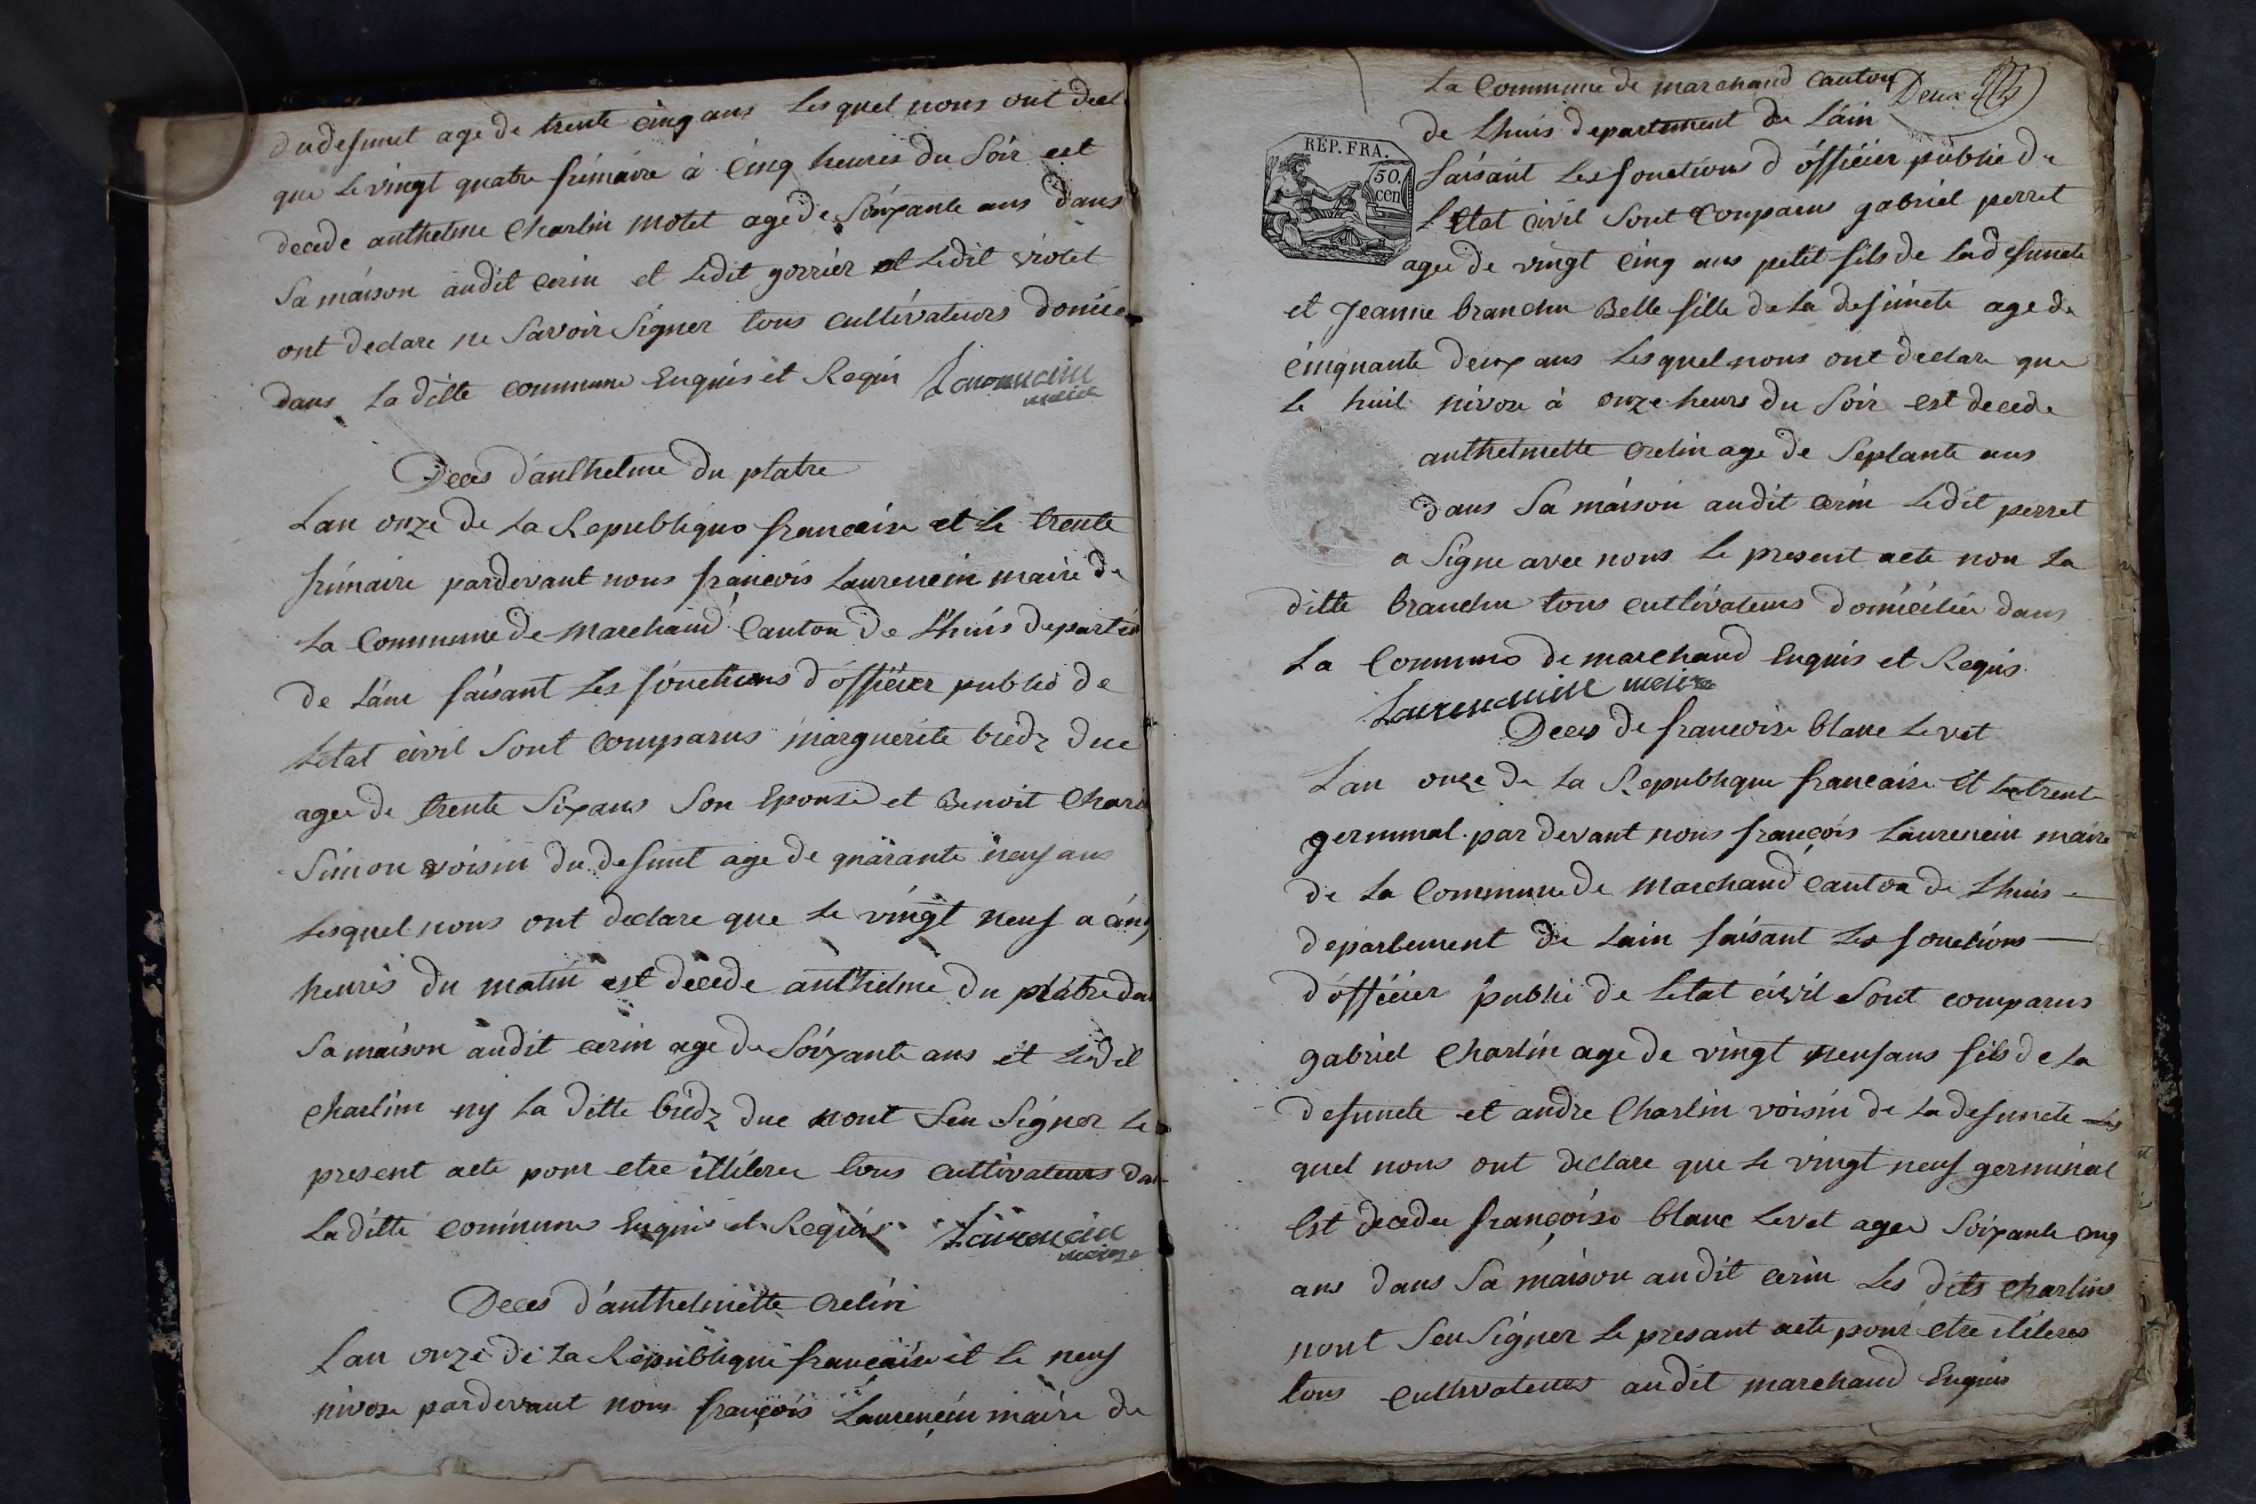 du defunt age de trente cinq ans lesquel nous ont decl
que le vingt quatre frimaire à cinq heures du soir est
decede anthelme Charlin motet age de soixante ans dans
sa maison audit cerin et ledit gorrier et ledit violet
ont declare ne savoir signer tous cultivateurs domici
dans la ditte commune Enquis et Requi Laurencin
maire
Deces d'anthelme du platre
Lan onze de la Republique francaise et le trente
frimaire pardevant nous francois Laurencin maire de
la Commune de Marchand Canton de Lhuis departe
de Lain faisant les fonctions d'officier public de
Letat civil sont comparus marguerite budz due
agee de trente six ans son Epouse et Benoit Charl
Simon voisin du defunt age de quarante neuf ans
lesquel nous ont declare que le vingt neuf a cinq
heures du matin est decede anthelme du platre da
sa maison audit cerin age de soixante ans et ledit
Charlin ny la ditte budz due nont seu signer le
present acte pour etre illiteree tous cultivateurs da
la ditte commune Enquis et Requis Laurencin
maire
Deces d'anthelmette Crelin
Lan onze de la Republique francaise et le neuf
nivose pardevant nous françois Laurencin maire de
la Commune de marchand canton
Deux
de Lhuis departement de Lain
REP. FRA.
50.
cen
faisant les fonctions d'officier public de
Letat civil sont comparus gabriel perret
agee de vingt cinq ans petit fils de la defuncte
et Jeanne branchu Belle fille de la defuncte age de
cinquante deux ans lesquel nous ont declare que
le huit nivose à onze heurs du soir est decede
anthelmette crelin age de septante ans
dans sa maison audit cerin ledit perret
a signe avec nous le present acte non la
ditte branchu tous cultivateurs domicilie dans
la Commune de marchand Enquis et Requis
Laurencin maire
Deces de francoise blanc levet
Lan onze de la Republique francaise et le trente
germinal par devant nous françois Laurencin maire
de la Commune de Marchand Canton de Lhuis
departement de Lain faisant les fonctions
d'officier public de Letat civil sont comparus
gabriel Charlin age de vingt neuf ans fils de la
defuncte et andre Charlin voisin de la defuncte les
quel nous ont declare que le vingt neuf germinal
Est decedee françoise blanc levet agee soixante cinq
ans dans sa maison audit cerin les dits Charlins
nont seu signer le presant acte pour etre iliteres
tous cultivateurs audit marchand Enquis